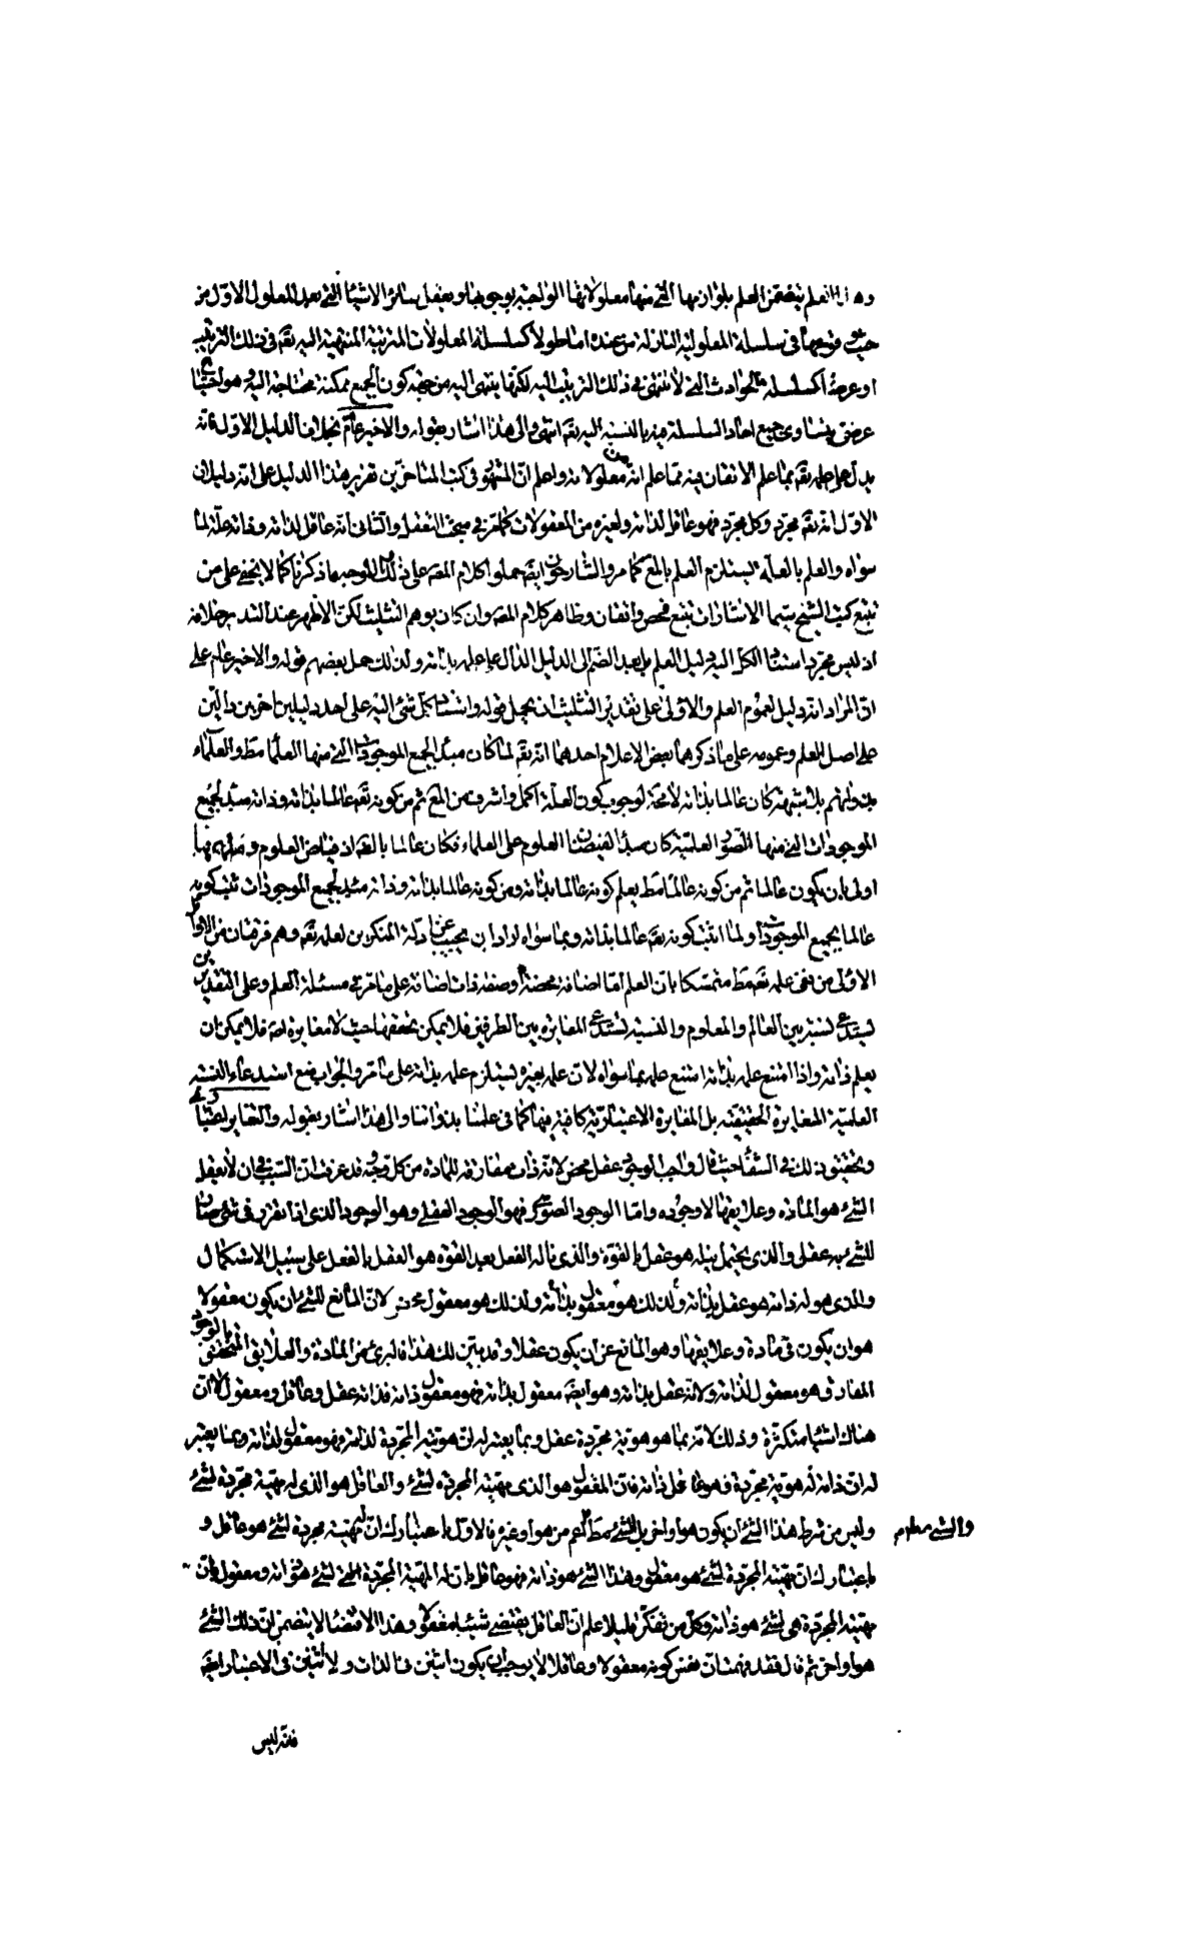 وهذا العلم يتضمن العلم بلوازمها التي منها معلولاتها الواجبة بوجوبها ويعقل سائر الاشياء التي بعد المعلول الاول من
حيث وقوعها في سلسلة المعلولية النازلة من عنده اما طولا كسلسلة المعلولات المترتبة المنتهية اليه تعه في ذلك الترتيب
او عرضا كسلسلة الحوادث التي لا تنتهي في ذلك الترتيب اليه لكنها ينتهى اليه من جهة كون الجميع ممكنة محتاجة اليه وهو احتياج
عرضي يتساوى جميع احاد السلسلة فيه بالنسبة اليه تعه انتهى والى هذا اشار بقوله والاخير عام بخلاف الدليل الاول فانه
يدل على علمه تعه بما علم الاتقان فيه مما علم انه من معلولاته واعلم ان المشهور في كتب المتاخرين تقرير هذا الدليل على انه دليلان
الاول انه تعه مجرد وكل مجرد فهو عاقل لذاته ولغيره من المعقولات كما مر في مبحث التعقل والثاني انه عاقل لذاته وذاته علة لما
سواه والعلم بالعلة يستلزم العلم بالمع كما مر والشارحون ايضه حملوا كلام المصه على ذلك والوجه ما ذكرنا كما لا يخفى على من
تتبع كتب الشيخ سيما الاشارات تتبع فحص واتقان وظاهر كلام المصه وان كان يوهم التثليث لكن الاظهر عند التدبر خلافه
اذ ليس مجرد استناد الكل اليه دليل العلم بل بعد الضم الى الدليل الدال على علمه بذاته ولذلك حمل بعضهم قوله والاخير عام على
ان المراد انه دليل لعموم العلم والاولى على تقدير التثليث ان يحمل قوله واستناد كل شئ اليه على احد دليلين اخرين دالين
على اصل العلم وعمومه على ما ذكرهما بعض الاعلام احدهما انه تعه لما كان مبدأ لجميع الموجودات التي منها العلماء مط والعلماء
بذواتهم بلا شبهة كان عالما بذاته لا محة لوجوب كون العلة اكمل واشرف من المع ثم من كونه تعه عالما بذاته وذاته مبدأ لجميع
الموجودات التي منها الصور العلمية كان مبدأ لفيضان العلوم على العلماء فكان عالما بالضه اذ فياض العلوم وملهمها
اولى بان يكون عالما ثم من كونه عالما مط يعلم كونه عالما بذاته ومن كونه عالما بذاته وذاته مبدأ لجميع الموجودات ثبت كونه
عالما بجميع الموجودات ولما اثبت كونه تعه عالما بذاته وبما سواه اراد ان يجيب عن ادلة المنكرين لعلمه تعه وهم فرقتان من الاوائل
الاولى من نفى علمه تعه مط متمسكا بان العلم اما اضافة محضة او صفة ذات اضافة على ما مر في مسئلة العلم وعلى التقديرين
يستدعى نسبة بين العالم والمعلوم والنسبة تستدعى المغايرة بين الطرفين فلا يمكن تحققها حيث لا مغايرة اصه فلا يمكن ان
يعلم ذاته واذا امتنع علمه بذاته امتنع علمه بما سواه لان علمه بغيره يستلزم علمه بذاته على ما مر والجواب منع استدعاء النسبة
العلمية المغايرة الحقيقية بل المغايرة الاعتبارية كافية فيها كما في علمنا بذواتنا والى هذا اشار بقوله والتغاير اعتبارى
وتحقيق ذلك في الشفا حيث قال واجب الوجود عقل محض لانه ذات مفارقة للمادة من كل وجه وقد عرفت ان السبب في ان لا يعقل
الشئ هو المادة وعلايقها لا وجوده واما الوجود الصورى فهو الوجود العقلي وهو الوجود الذى اذا تقرر في شئ صار
للشئ به عقل والذى يحتمل نيله هو عقل بالقوة والذى ناله الفعل بعد القوة هو العقل بالفعل على سبيل الاستكمال
والذى هو له ذاته هو عقل بذاته وكذلك هو معقول بذاته وكذلك هو معقول محض لان المانع للشئ ان يكون معقولا
هو ان يكون في مادة وعلايقها وهو المانع عن ان يكون عقلا وقد تبين لك هذا فالبرئ عن المادة والعلايق المتحقق بالوجود
المفارق هو معقول لذاته ولانه عقل بذاته وهو ايضه معقول بذاته فهو معقول ذاته فذاته عقل وعاقل ومعقول لا ان
هناك اشياء متكثرة وذلك لانه بما هو هوية مجردة عقل وبما يعتبر له ان هويته المجردة لذاته فهو معقول لذاته وبما يعتبر
له ان ذاته له هوية مجردة فهو عاقل ذاته فان المعقول هو الذى مهيته المجردة لشئ والعاقل هو الذى له مهية مجردة لشئ
وليس من شرط هذا الشئ ان يكون هو او اخر بل الشئ مط اعم من هو او غيره فالاول باعتبارك ان له مهية مجردة لشئ هو عاقل و
والشئ مط اعم
باعتبارك ان مهيته المجردة لشئ هو معقول وهذا الشئ هو ذاته فهو عاقل بان له المهية المجردة التي لشئ هو ذاته ومعقول بان
مهيته المجردة هي لشئ هو ذاته وكل من تفكر قليلا علم ان العاقل يقتضى شيئا معقولا وهذا الاقتضاء لا يتضمن ان ذلك الشئ
هو او اخر ثم قال فقد فهمت ان نفس كونه معقولا وعاقلا لا يوجب ان يكون اثنين في الذات ولا اثنين في الاعتبار ايضه
فانه ليس